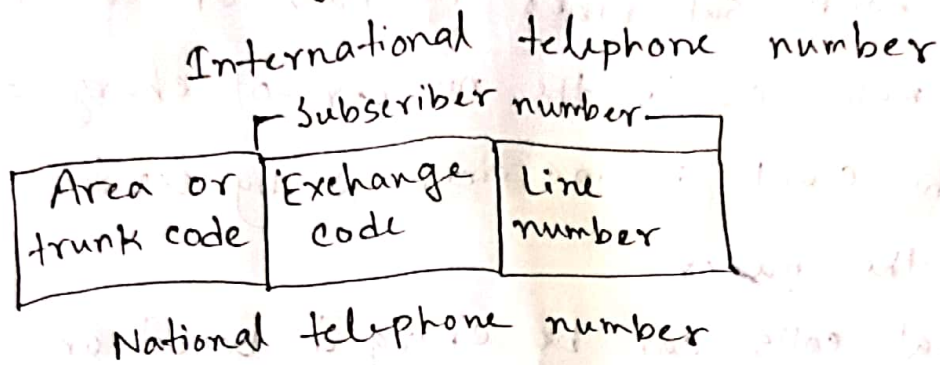 International telephone number
Subscriber number
Area or Exchange Line
trunk code code number
National telephone number